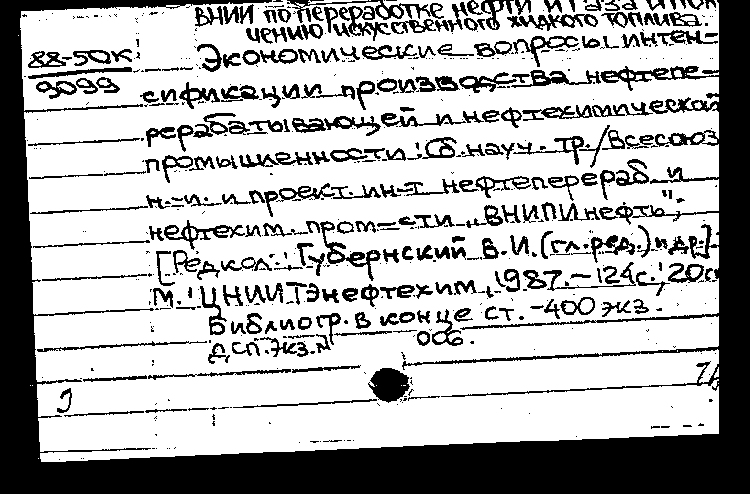 ВНИИ по переработке нефти и газа и полу-
чению искусственного жидкого топлива.
88-50К Экономические вопросы интен-
9099 сификации производства нефтепе-
рерабатывающей и нефтехимической
промышленности: Сб. науч. тр./Всесоюз
н.-и. и проект. ин-т нефтеперераб. и
нефтехим. пром-сти "ВНИПИнефть";
[Редкол.: Губернский В.И. (гл.ред.) и др.].
М.: ЦНИИТЭнефтехим, 1987.-124с.; 20см
Библиогр. в конце ст. -400 экз.
ДСП. Экз. N 006.